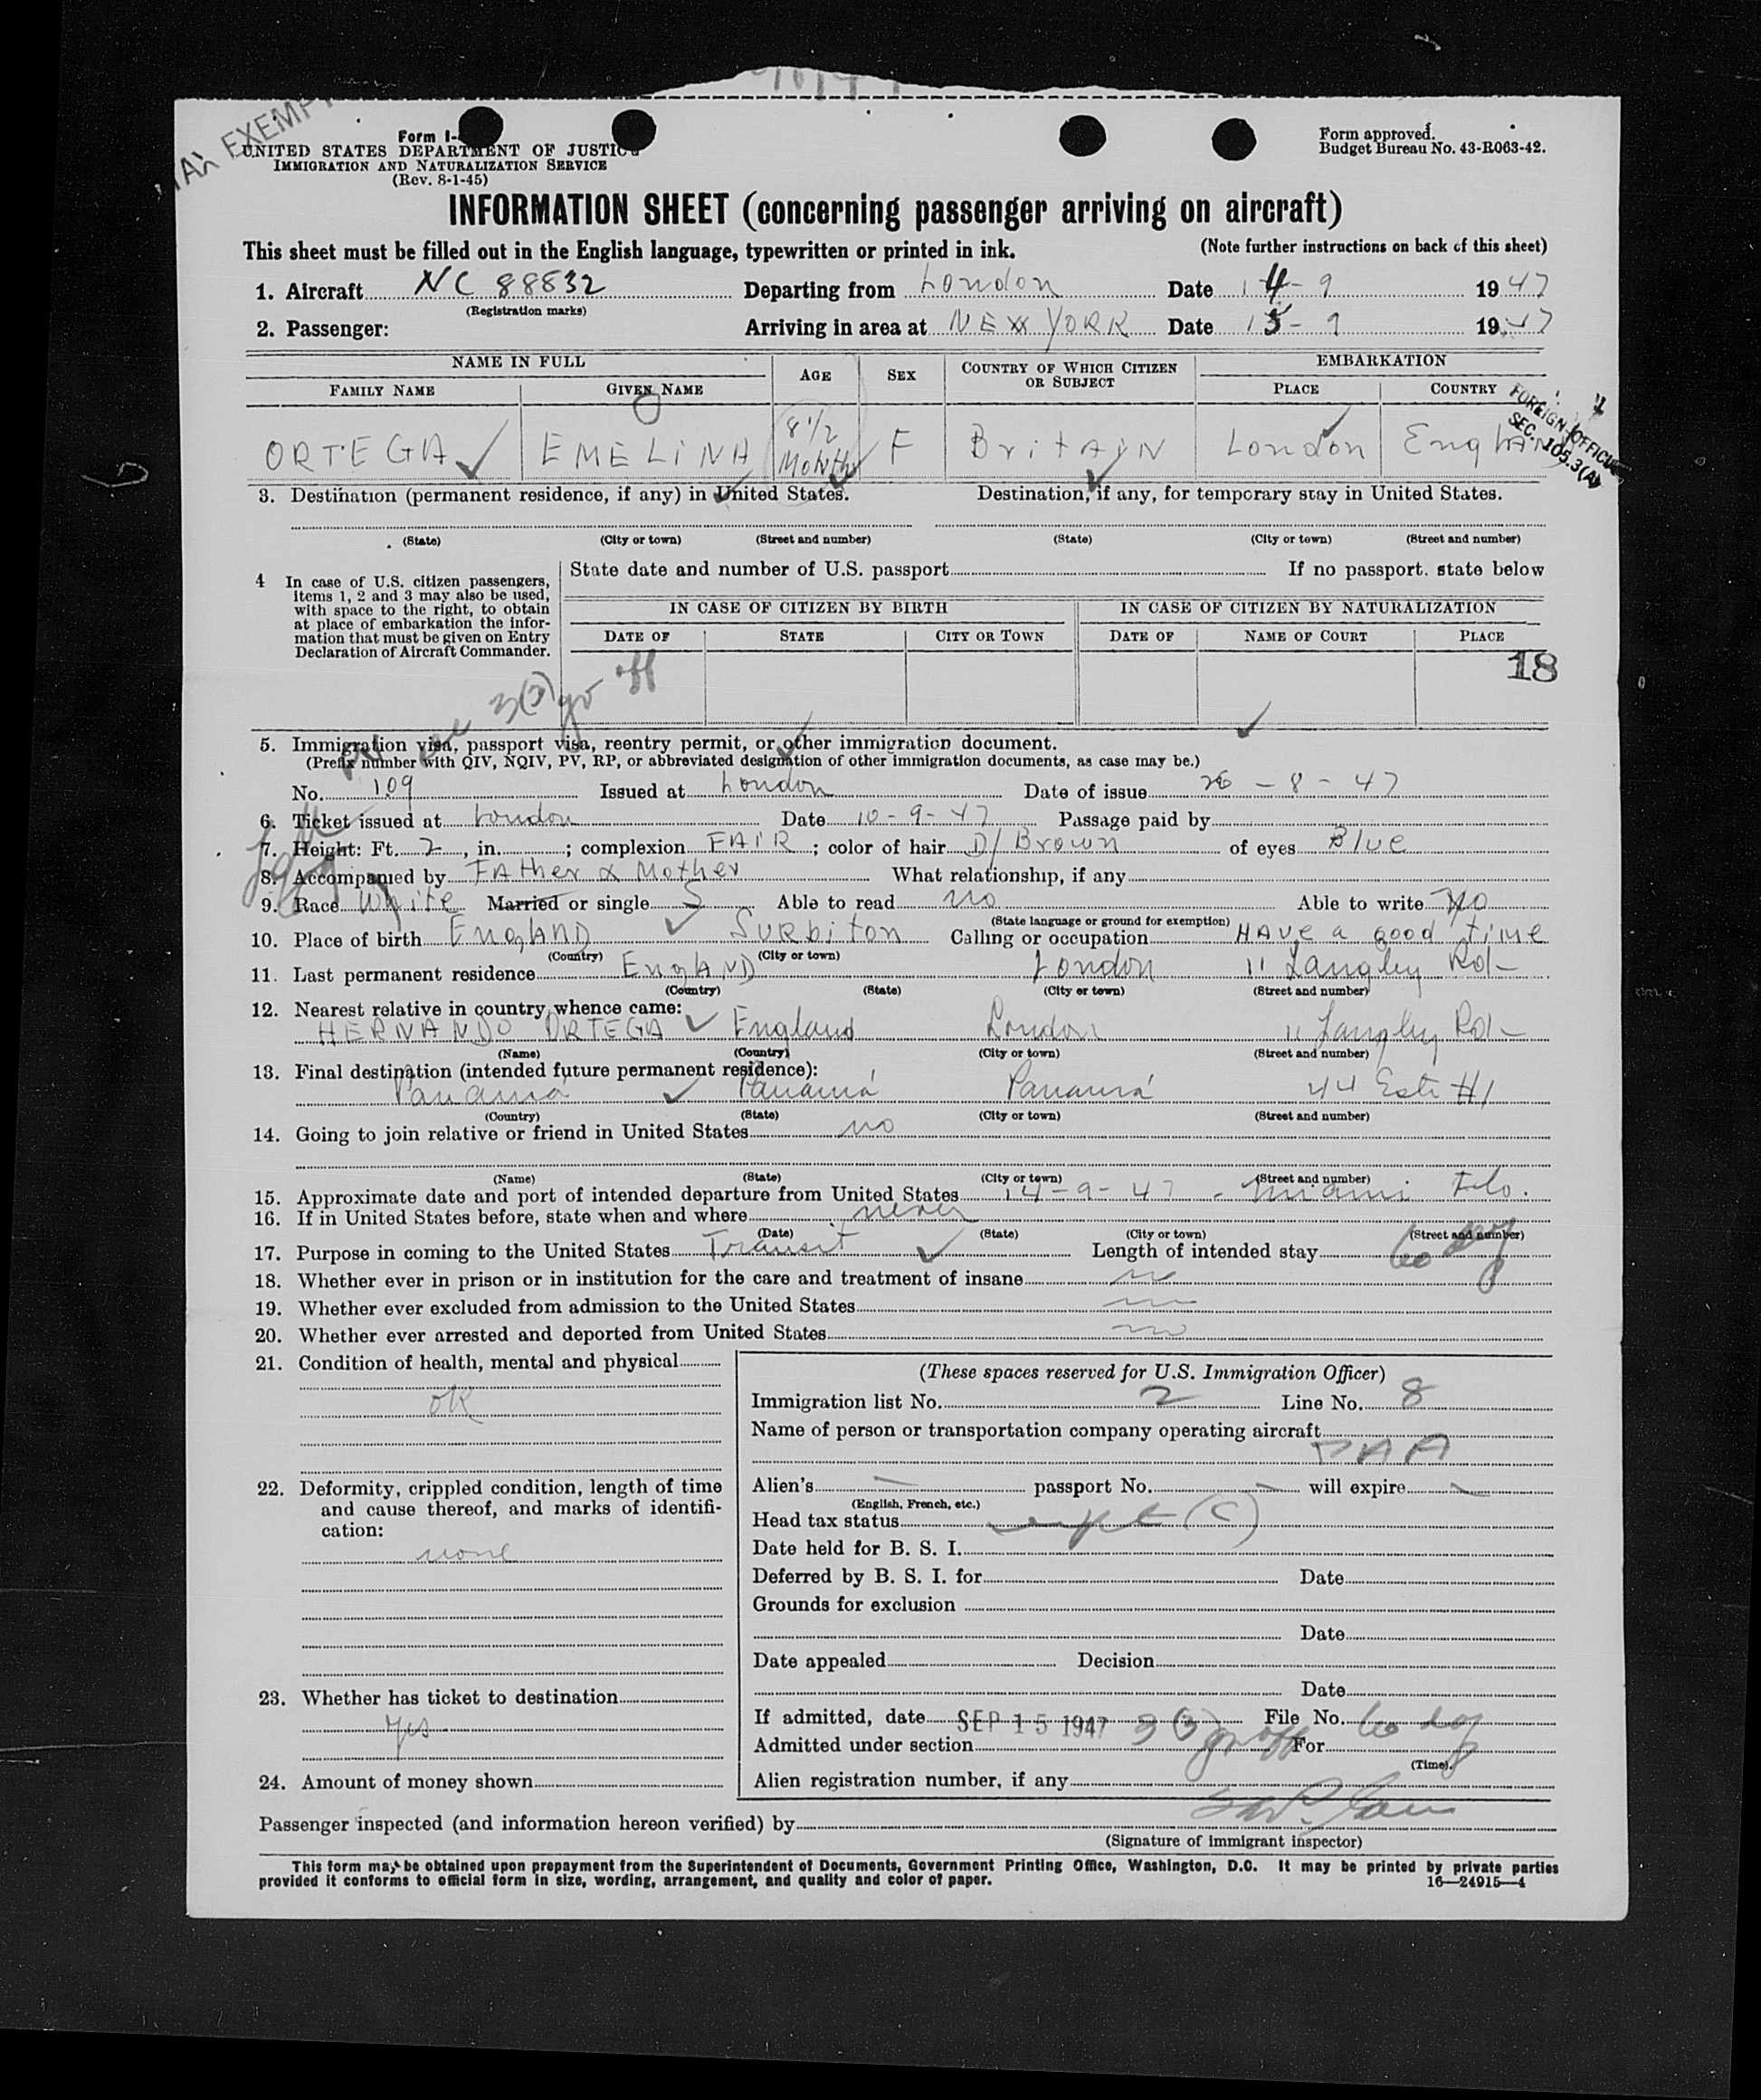 TAX EXEMPT
Form I-
UNITED STATES DEPARTMENT OF JUSTICE
IMMIGRATION AND NATURALIZATION SERVICE
(Rev. 8-1-45)
Form approved.
Budget Bureau No. 43-R063-42.
INFORMATION SHEET (concerning passenger arriving on aircraft)
This sheet must be filled out in the English language, typewritten or printed in ink. (Note further instructions on back of this sheet)
1. Aircraft NC 88832 Departing from London Date 14-9 1947
(Registration marks)
2. Passenger: Arriving in area at NEW YORK Date 15-9 1947
NAME IN FULL AGE SEX COUNTRY OF WHICH CITIZEN OR SUBJECT EMBARKATION
FAMILY NAME GIVEN NAME PLACE COUNTRY
ORTEGA EMELINA 8 1/2 Months F BritAIN London England
FOREIGN OFFICIAL
SEC. 105.3(A)
3. Destination (permanent residence, if any) in United States. Destination, if any, for temporary stay in United States.
(State) (City or town) (Street and number) (State) (City or town) (Street and number)
4 In case of U.S. citizen passengers, items 1, 2 and 3 may also be used, with space to the right, to obtain at place of embarkation the information that must be given on Entry Declaration of Aircraft Commander.
State date and number of U.S. passport If no passport. state below
IN CASE OF CITIZEN BY BIRTH IN CASE OF CITIZEN BY NATURALIZATION
DATE OF STATE CITY OR TOWN DATE OF NAME OF COURT PLACE
18
3(3) gv off
5. Immigration visa, passport visa, reentry permit, or other immigration document.
(Prefix number with QIV, NQIV, PV, RP, or abbreviated designation of other immigration documents, as case may be.)
No. 109 Issued at London Date of issue 26-8-47
6. Ticket issued at London Date 10-9-47 Passage paid by
7. Height: Ft. 2, in. ; complexion FAIR ; color of hair D/Brown of eyes Blue
8. Accompanied by FAther & Mother What relationship, if any
9. Race White Married or single S Able to read no Able to write No
(State language or ground for exemption)
10. Place of birth EnglAND Surbiton Calling or occupation HAVe a good time
(Country) (City or town)
11. Last permanent residence EnglAND London 11 Langley Rd-
(Country) (State) (City or town) (Street and number)
12. Nearest relative in country whence came:
HERNANDO ORTEGA England London 11 Langley Rd-
(Name) (Country) (City or town) (Street and number)
13. Final destination (intended future permanent residence):
Panamá Panamá Panamá 44 Este #1
(Country) (State) (City or town) (Street and number)
14. Going to join relative or friend in United States no
(Name) (State) (City or town) (Street and number)
15. Approximate date and port of intended departure from United States 14-9-47 - Miami Flo.
16. If in United States before, state when and where never
(Date) (State) (City or town) (Street and number)
17. Purpose in coming to the United States Transit Length of intended stay 60 dys
18. Whether ever in prison or in institution for the care and treatment of insane no
19. Whether ever excluded from admission to the United States no
20. Whether ever arrested and deported from United States no
21. Condition of health, mental and physical
OK
22. Deformity, crippled condition, length of time and cause thereof, and marks of identification:
none
23. Whether has ticket to destination
Yes
24. Amount of money shown
(These spaces reserved for U.S. Immigration Officer)
Immigration list No. 2 Line No. 8
Name of person or transportation company operating aircraft
PAA
Alien's passport No. will expire
(English, French, etc.)
Head tax status expt (C)
Date held for B. S. I.
Deferred by B. S. I. for Date
Grounds for exclusion
Date
Date appealed Decision
Date
If admitted, date SEP 15 1947 File No.
Admitted under section 3(3) gv off For 60 dys
(Time)
Alien registration number, if any
Passenger inspected (and information hereon verified) by
(Signature of immigrant inspector)
This form may be obtained upon prepayment from the Superintendent of Documents, Government Printing Office, Washington, D.C. It may be printed by private parties
provided it conforms to official form in size, wording, arrangement, and quality and color of paper. 16—24915—4